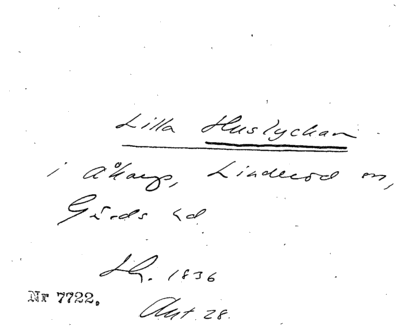 Lilla Huslyckan
i Åkarp, Linderöd sn,
Gärds hd
1836
Nr 7722.
Akt 28